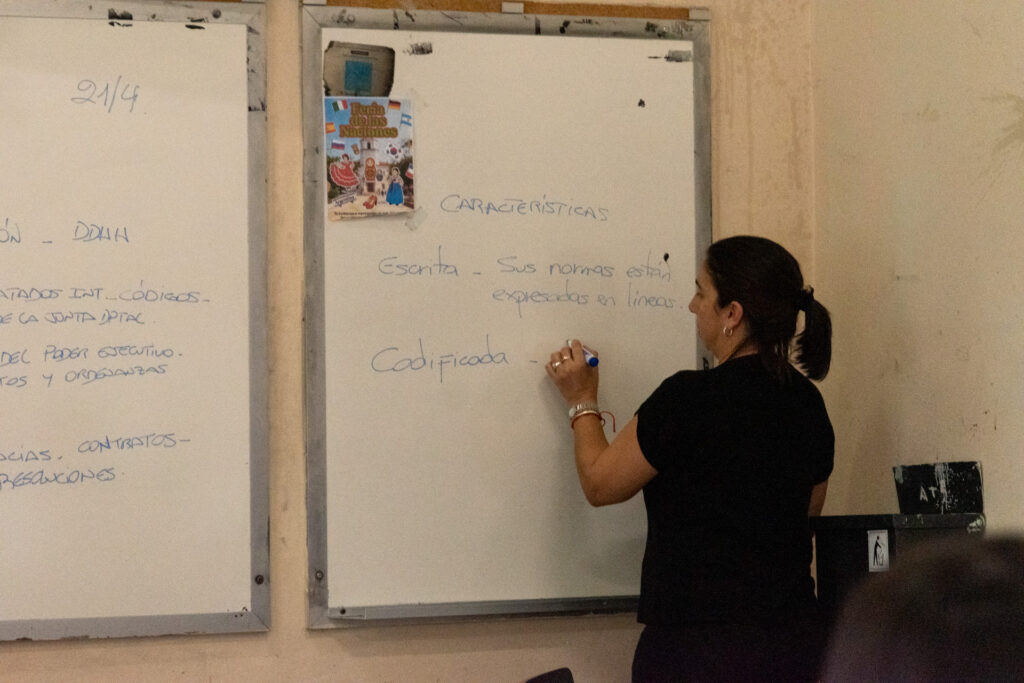 21/4
ÓN - DDHH
ATADOS INT - CÓDIGOS -
DE LA JUNTA DPTAL.
DEL PODER EJECUTIVO.
TOS Y ORDENANZAS
CIAS. CONTRATOS -
RESOLUCIONES
Feria
de las
Naciones
CARACTERÍSTICAS
Escrita - Sus normas están
expresadas en líneas.
Codificada -
AT